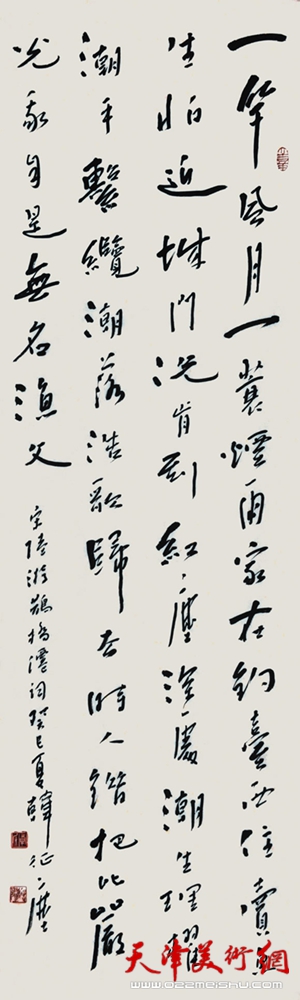 一竿風月一蓑煙雨家在釣臺西住賣魚
生怕近城門況肯到紅塵深處潮生理櫂
潮平繫纜潮落浩歌歸去時人錯把比嚴
光我自是無名漁父
宋陸游鵲橋僊詞癸巳夏韓征塵
天津美術網
www.022meishu.com